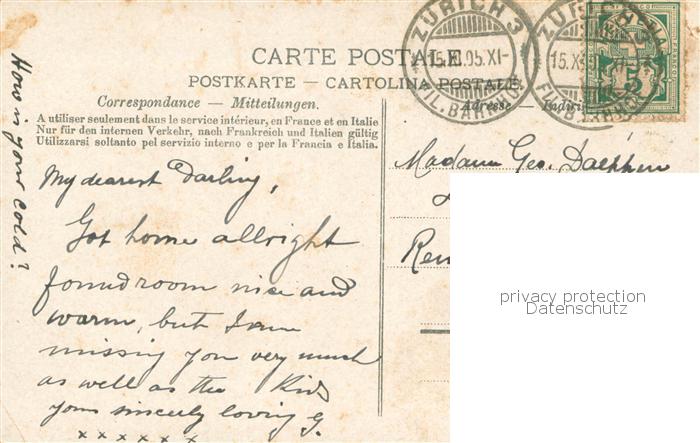 ZÜRICH 3
15.XI.05.XI-
FIL.BAHNHOF
ZÜRICH 3
15.X
FIL.BAHNHOF
5
CARTE POSTALE.
POSTKARTE — CARTOLINA POSTALE.
Correspondance — Mitteilungen.
Adresse — Indiri
A utiliser seulement dans le service intérieur, en France et en Italie
Nur für den internen Verkehr, nach Frankreich und Italien gültig
Utilizzarsi soltanto pel servizio interno e per la Francia e Italia.
How is your cold?
My dearest Darling,
Got home allright
found room nice and
warm, but I am
missing you very much
as well as the Kids
yours sincerly loving G.
x x x x x x
Madame Geo.
Ren
privacy protection
Datenschutz